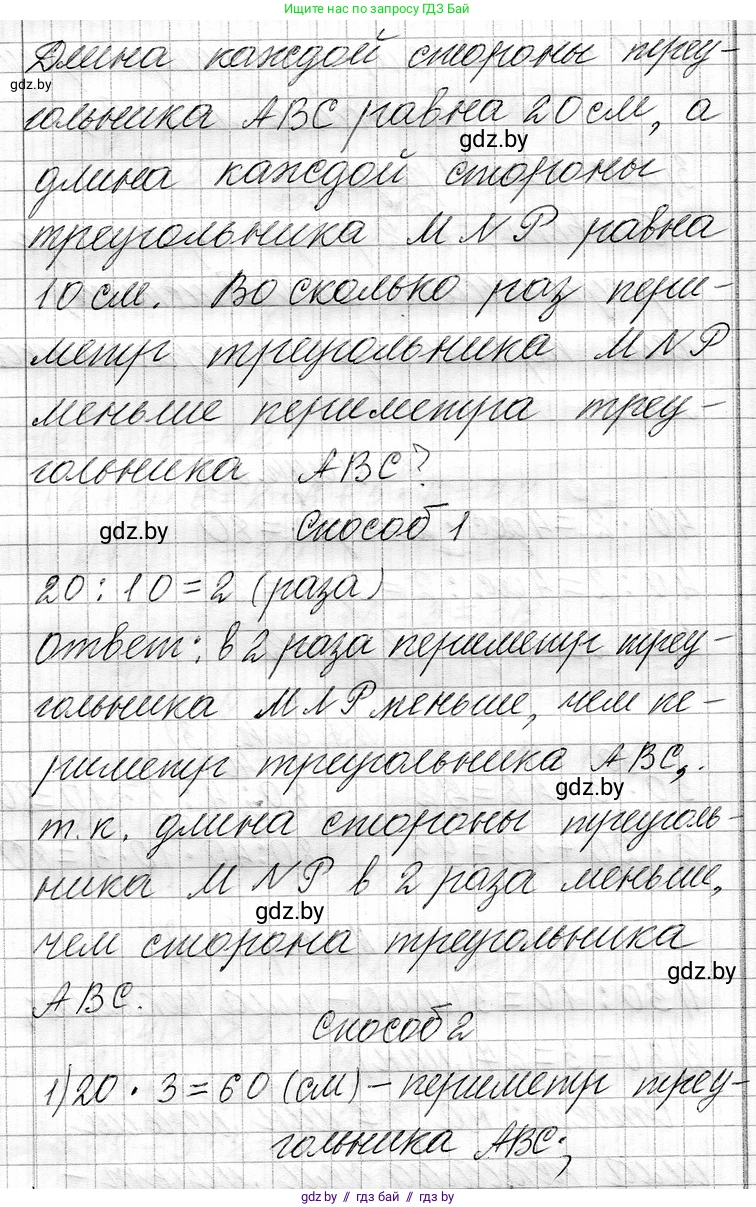 Ищите нас по запросу ГДЗ Бай
Длина каждой стороны треу-
gdz.by
гольника ABC равна 20 см, а
gdz.by
длина каждой стороны
треугольника MNP равна
10 см. Во сколько раз пери-
метр треугольника MNP
меньше периметра треу-
гольника ABC?
gdz.by
Способ 1
20 : 10 = 2 (раза)
Ответ: в 2 раза периметр треу-
гольника MNP меньше, чем пе-
риметр треугольника ABC,.
gdz.by
т.к. длина стороны треуголь-
ника MNP в 2 раза меньше,
gdz.by
чем сторона треугольника
gdz.by
ABC.
Способ 2
1) 20 · 3 = 60 (см) – периметр треу-
гольника ABC;
gdz.by // гдз бай // gdz.by